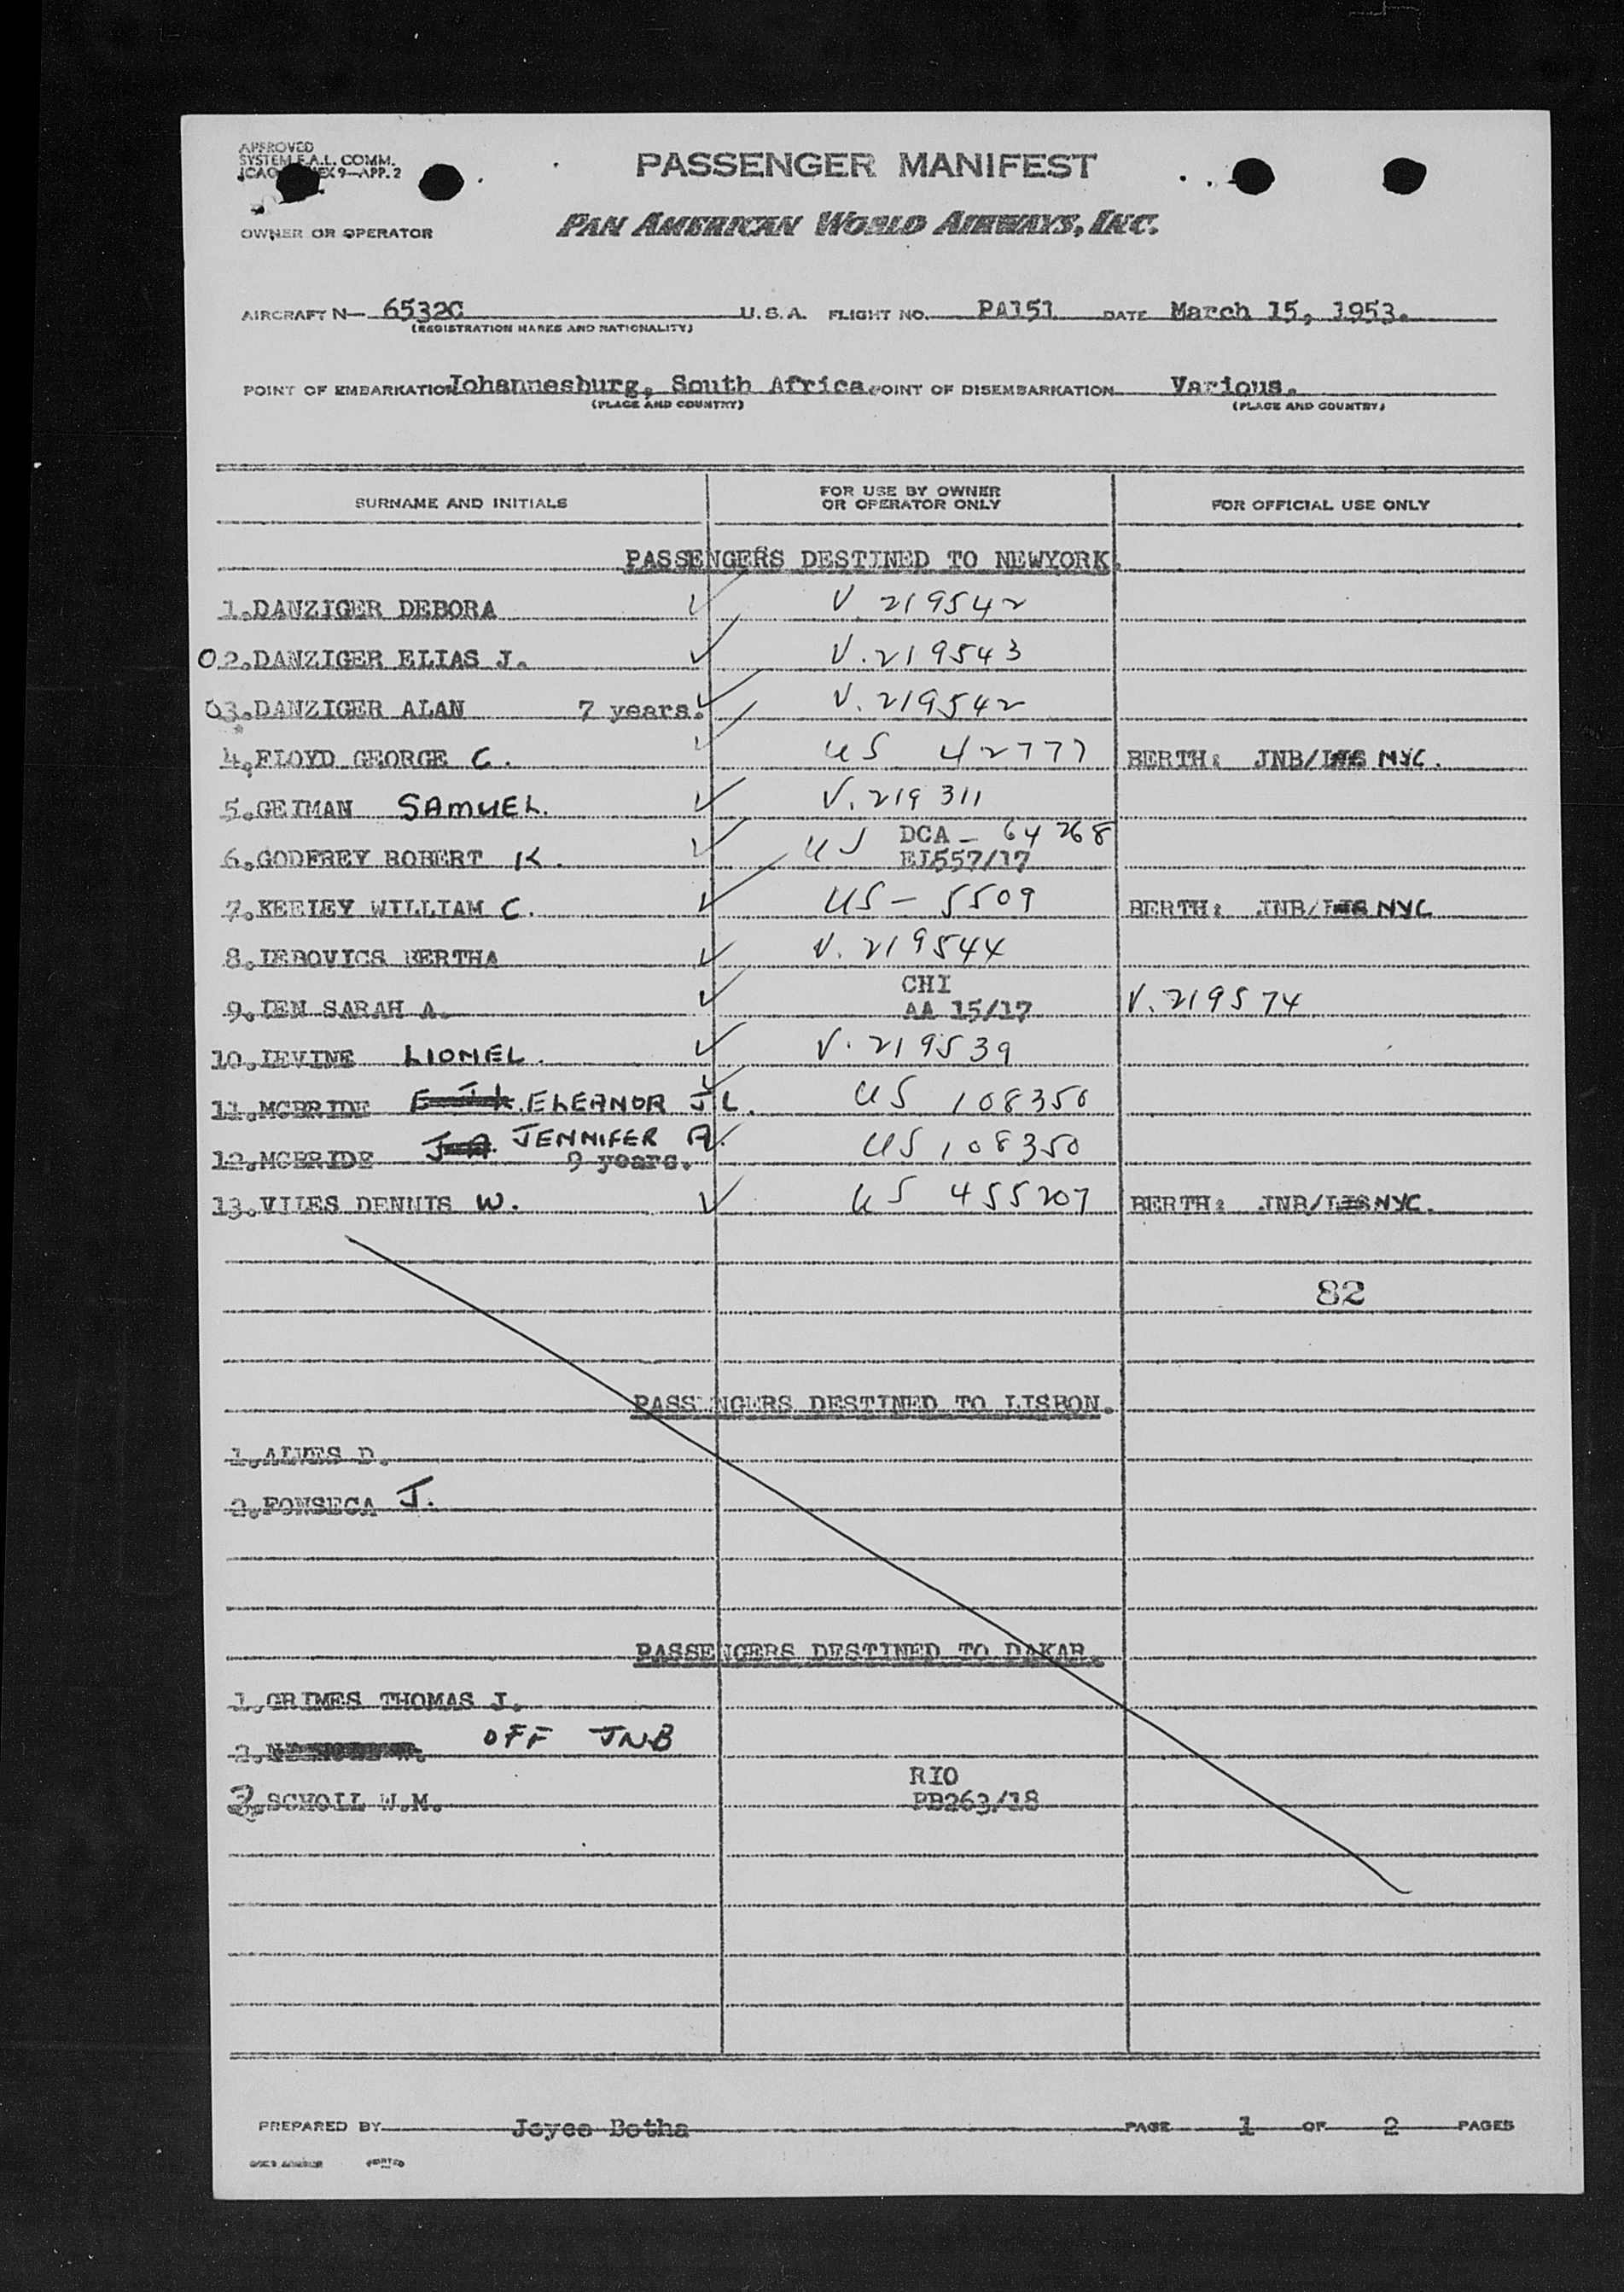 APPROVED
SYSTEM F.A.L. COMM.
9—APP. 2
PASSENGER MANIFEST
OWNER OR OPERATOR
PAN AMERICAN WORLD AIRWAYS, INC.
AIRCRAFT N— 6532C U.S.A. FLIGHT NO. PA151 DATE March 15, 1953.
(REGISTRATION MARKS AND NATIONALITY)
POINT OF EMBARKATION Johannesburg, South Africa. POINT OF DISEMBARKATION Various.
(PLACE AND COUNTRY) (PLACE AND COUNTRY)
SURNAME AND INITIALS FOR USE BY OWNER OR OPERATOR ONLY FOR OFFICIAL USE ONLY
PASSENGERS DESTINED TO NEWYORK.
1. DANZIGER DEBORA ✓ V 219542
O 2. DANZIGER ELIAS J. ✓ V. 219543
O 3. DANZIGER ALAN 7 years. ✓ V. 219542
4. FLOYD GEORGE C. ✓ US 42777 BERTH: JNB/ NYC.
5. GEIMAN SAMUEL. ✓ V. 219 311
6. GODFREY ROBERT K. ✓ US DCA - 64268
EJ557/17
7. KEELEY WILLIAM C. ✓ US - 5509 BERTH: JNB/ NYC
8. LEBOVICS BERTHA ✓ V. 219544
9. LEN SARAH A. ✓ CHI
AA 15/17 V. 219574
10. LEVINE LIONEL. ✓ V. 219539
11. MCBRIDE ELEANOR J L. ✓ US 108350
12. MCBRIDE JENNIFER A. 9 years. US 108350
13. VILES DENNIS W. ✓ US 455207 BERTH: JNB/ NYC.
82
PASSENGERS DESTINED TO LISBON.
1. ALVES D.
2. FONSECA J.
PASSENGERS DESTINED TO DAKAR.
1. GRIMES THOMAS J.
2. OFF JNB
3. SCHOLL W.M. RIO
PB263/18
PREPARED BY Joyce Botha PAGE 1 OF 2 PAGES